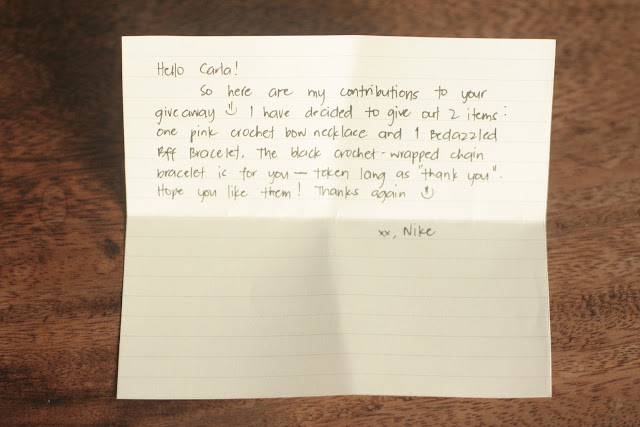 Hello Carla!
So here are my contributions to your
giveaway :) I have decided to give out 2 items:
one pink crochet bow necklace and 1 Bedazzled
Bff Bracelet. The black crochet-wrapped chain
bracelet is for you — token lang as "thank you".
Hope you like them! Thanks again :)
xx, Nike